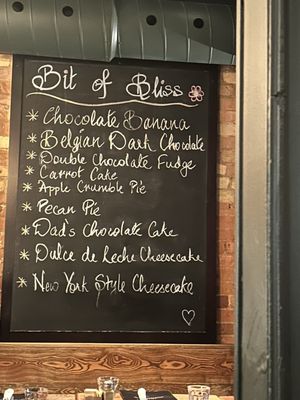 Bit of Bliss
* Chocolate Banana
* Belgian Dark Chocolate
* Double Chocolate Fudge
* Carrot Cake
* Apple Crumble Pie
* Pecan Pie
* Dad's Chocolate Cake
* Dulce de Leche Cheesecake
* New York Style Cheesecake